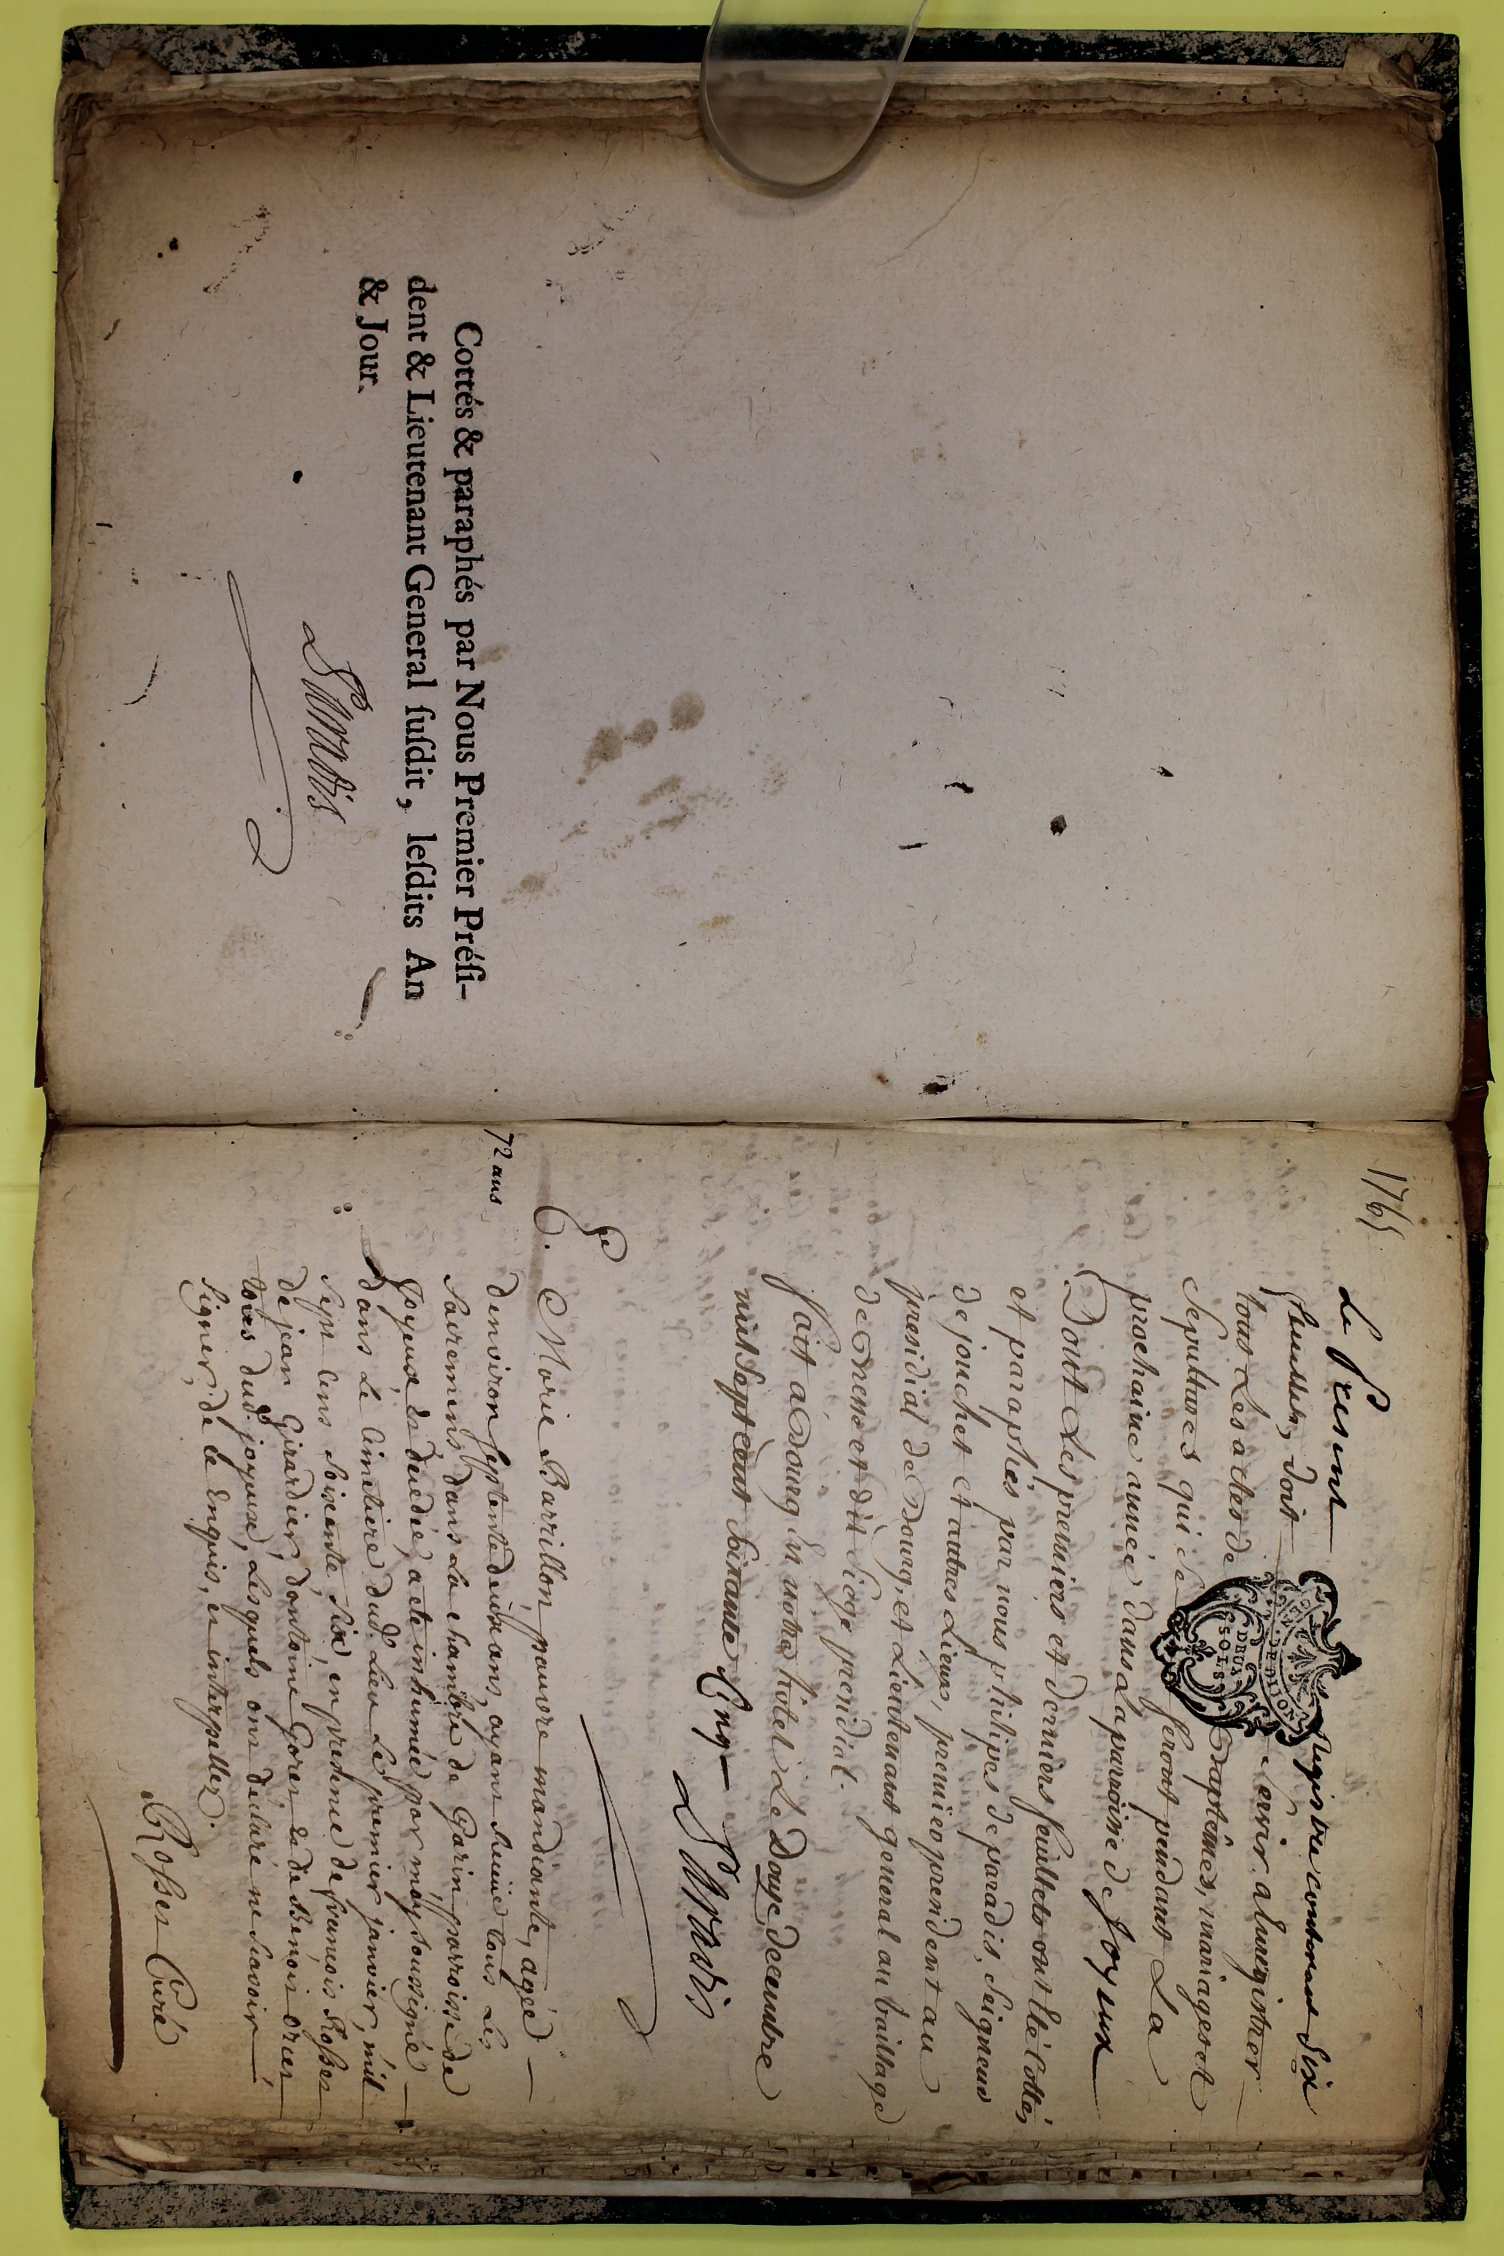 Cottés & paraphés par Nous Premier Prési-
dent & Lieutenant General susdit, lesdits An
& Jour.
Paradis
1765
Le present Registre contenant Six
feuillets, doit servir a Enregistrer
tous Les actes de Baptêmes, mariages et
Sepultures qui se feront pendant La
prochaine année dans La parroisse de Joyeux
Dont Les premiers et derniers feuillets ont Eté Cottés
et paraphés par nous philipes de paradis, Seigneur
de jouchet et autres Lieux, premier president au
presidial de Bourg, et Lieutenant general au bailliage
de Bresse et dit Siege presidial.
fait a Bourg en notre hôtel Le Douze decembre
mil Sept cent Soixante Cinq
Paradis
GEN. DE DIJON
DEUX
SOLS
72 ans
Marie Barrillon, pauvre mandiante, agée
denviron septente deux ans, ayant Receüe tous Les
Sacremens dans La chambre de Garin, parroisse de
Joyeux, Est décédé, a eté inhumée par moy soussigné
dans Le Cimetiere dud. Lieu Le premier janvier, mil
Sept Cens Soixante Six, en presence de francois Rosset
de jean Girardier, dantoine Goren et de Benoit orcet
tous dud. joyeux, Lesquels ont déclaré ne Scavoir
Signer, de ce Enquis, et interpellez.
Rosset Curé